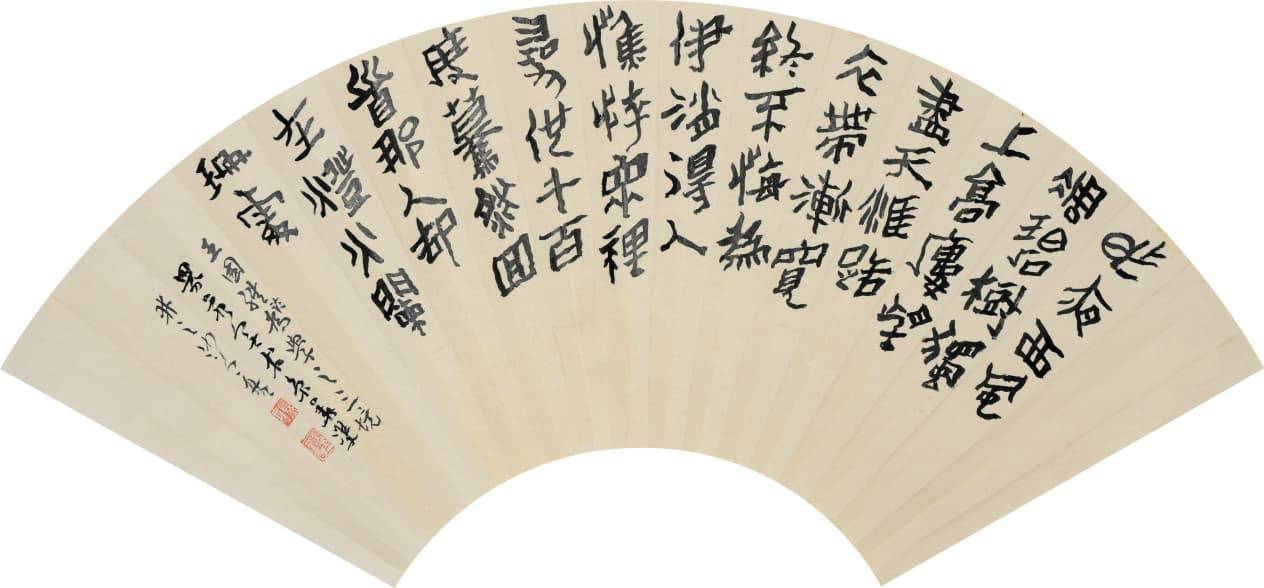 昨夜西風
凋碧樹獨
上高樓望
盡天涯路
衣帶漸寬
終不悔為
伊消得人
憔悴眾裡
尋他千百
度驀然回
首那人卻
在燈火闌
珊處
王國維學之三境
界